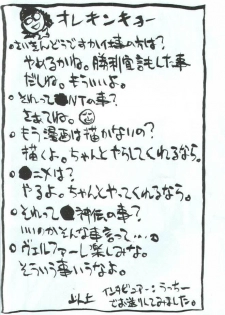 オレキンキョー
○さいきんどうですか仕事の方は?
やめるかね。勝利宣言もした事
だしね。もういいよ。
○それって●NTの事?
さぁてね。
○もう漫画は描かないの?
描くよ。ちゃんとやらしてくれるなら。
○●ニメは?
やるよ。ちゃんとやってくれるなら。
○それって●神伝の事?
いいのかそんな事言って…
○ヴェルファーレ楽しみな。
そういう事いうなよ。
以上
インタビュアー:うっちー
でお送りしてみました。